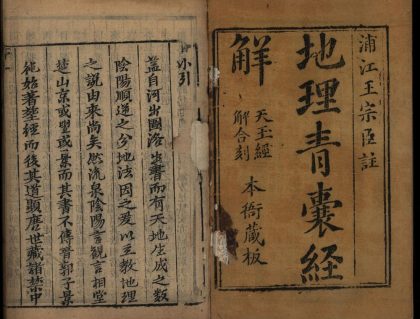 浦江王宗臣註
地理青囊經
解
天玉經
解合刻
本衙藏板
小引
蓋自河出圖洛出書而有天地生成之數
陰陽順逆之分地法因之爰以立教地理
之說由來尚矣然流泉陰陽言觀言相堂
楚山京或望或景而其書不傳晉郭子景
純始著塟經而後其道顯唐世藏諸禁中